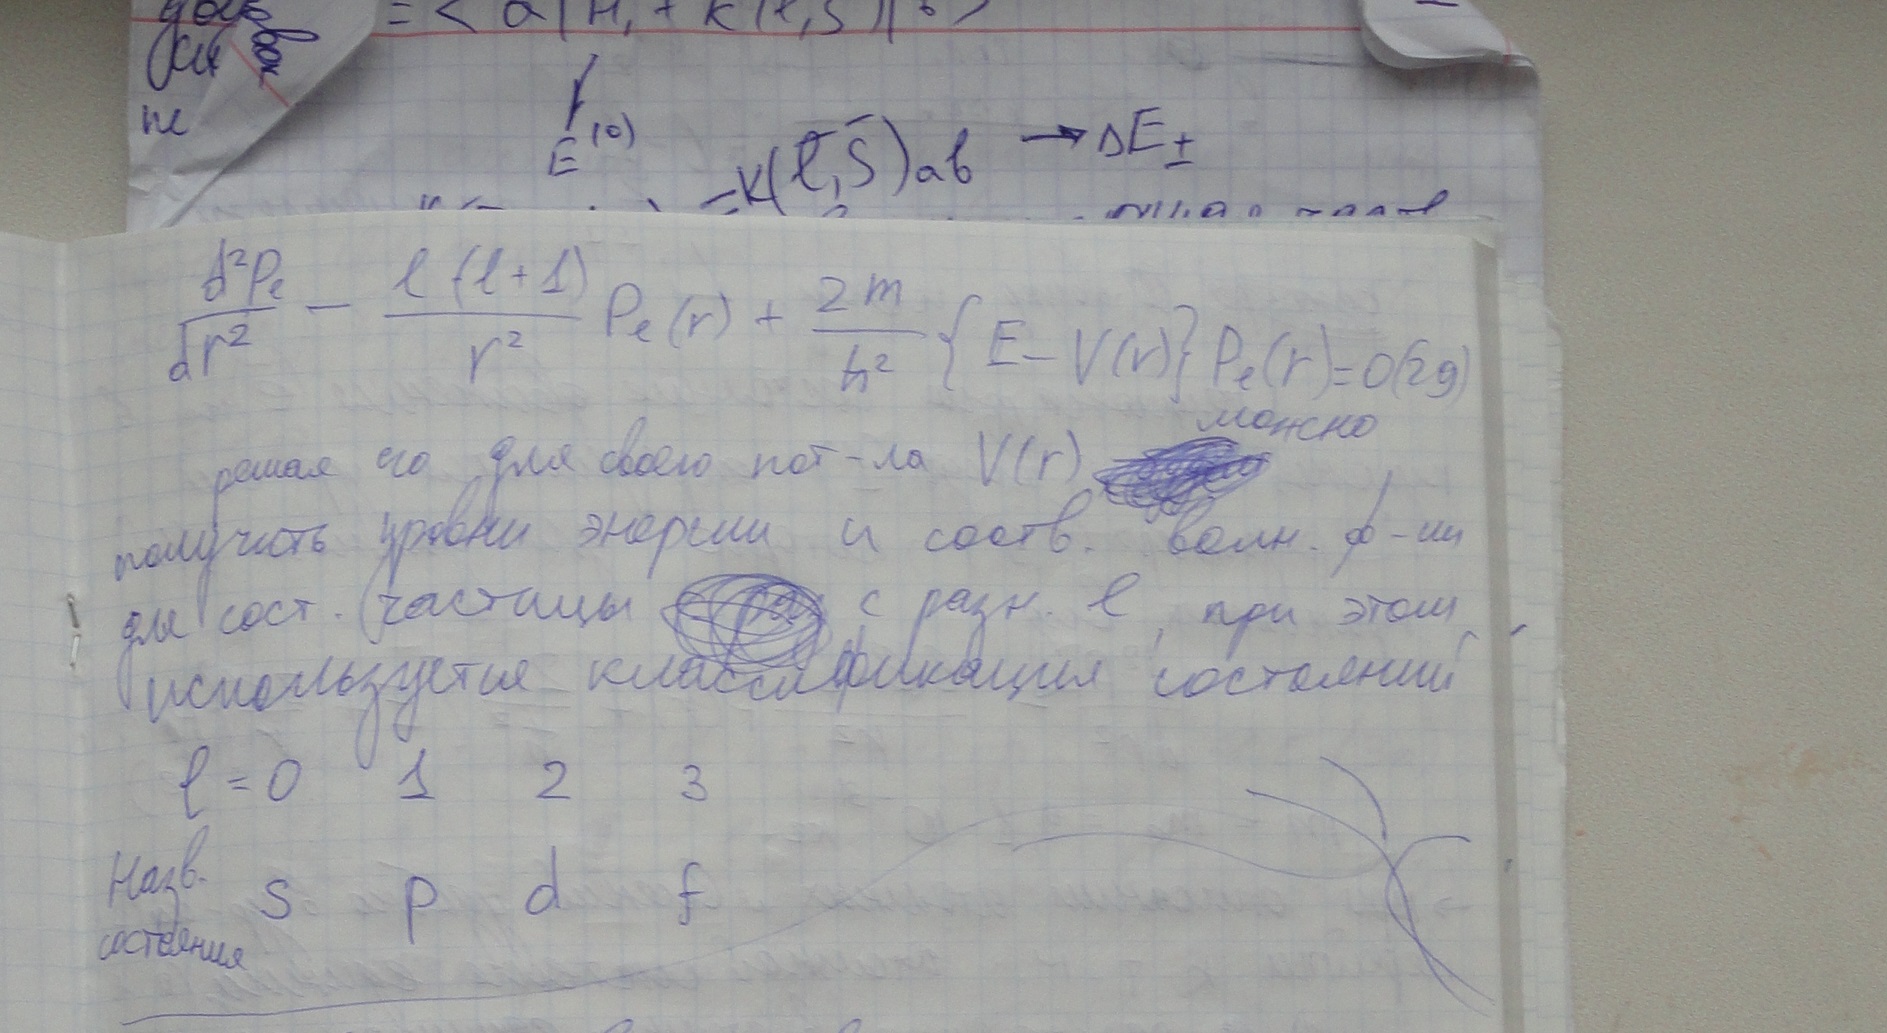 = < a | H₁ + K(l,S) | b >
не
E⁽⁰⁾
= K(l̄,S̄)ab → ΔE±
d²Pₑ/dr² − l(l+1)/r² Pₑ(r) + 2m/ħ² {E − V(r)} Pₑ(r) = 0 (29)
можно
решая его для своего пот-ла V(r)
получить уровни энергии и соотв. волн. ф-ии
для сост. частицы с разн. l, при этом
используется классификация состояний
l = 0 1 2 3
Назв. s p d f
состояния